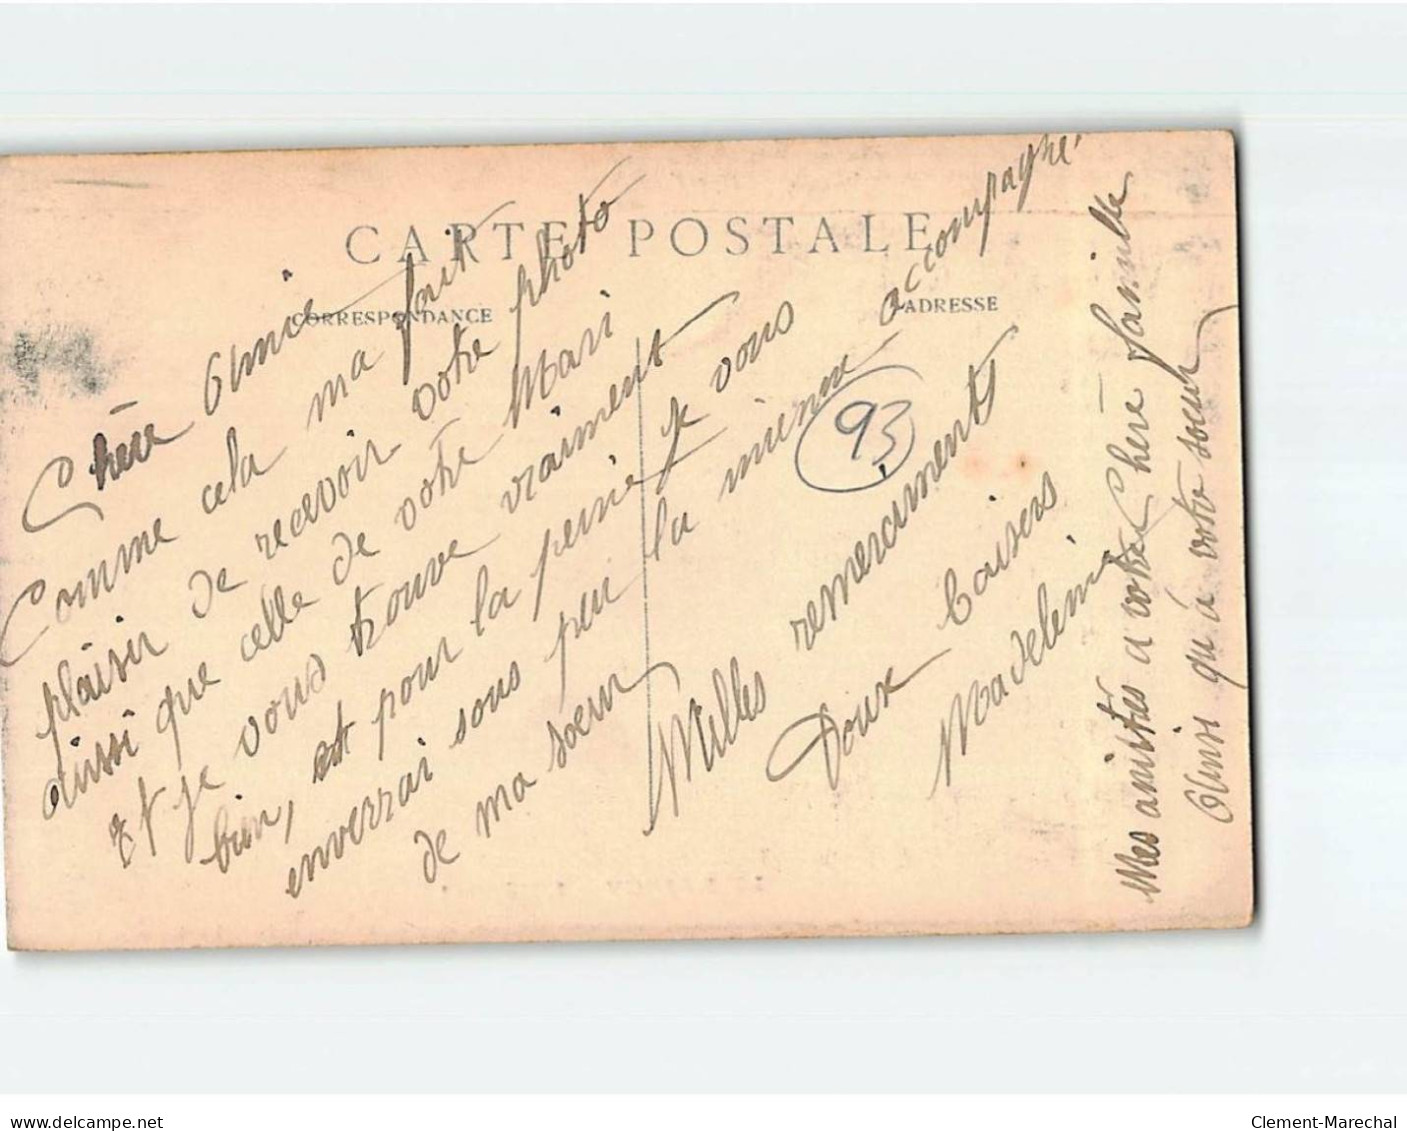 CARTE POSTALE
CORRESPONDANCE
ADRESSE
93
Chère Amie
Comme cela ma fait
plaisir de recevoir votre photo
aussi que celle de votre Mari
Et je vous trouve vraiment
bien, et pour la peine je vous
enverrai sous peu la mienne accompagné
de ma soeur
Milles remerciments
Doux baisers
Madeleine
Mes amitiés a votre Chère famille
Ainsi qu'à votre soeur
www.delcampe.net
Clement-Marechal